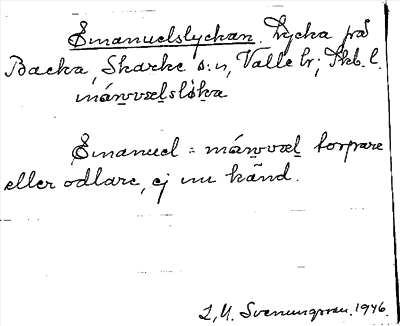 Emanuelslyckan. Lycka på
Backa, Skarke s:n, Valle hr; Skb. l.
Emanuel = torpare
eller odlare, ej nu känd.
S. Svenungsson. 1946.